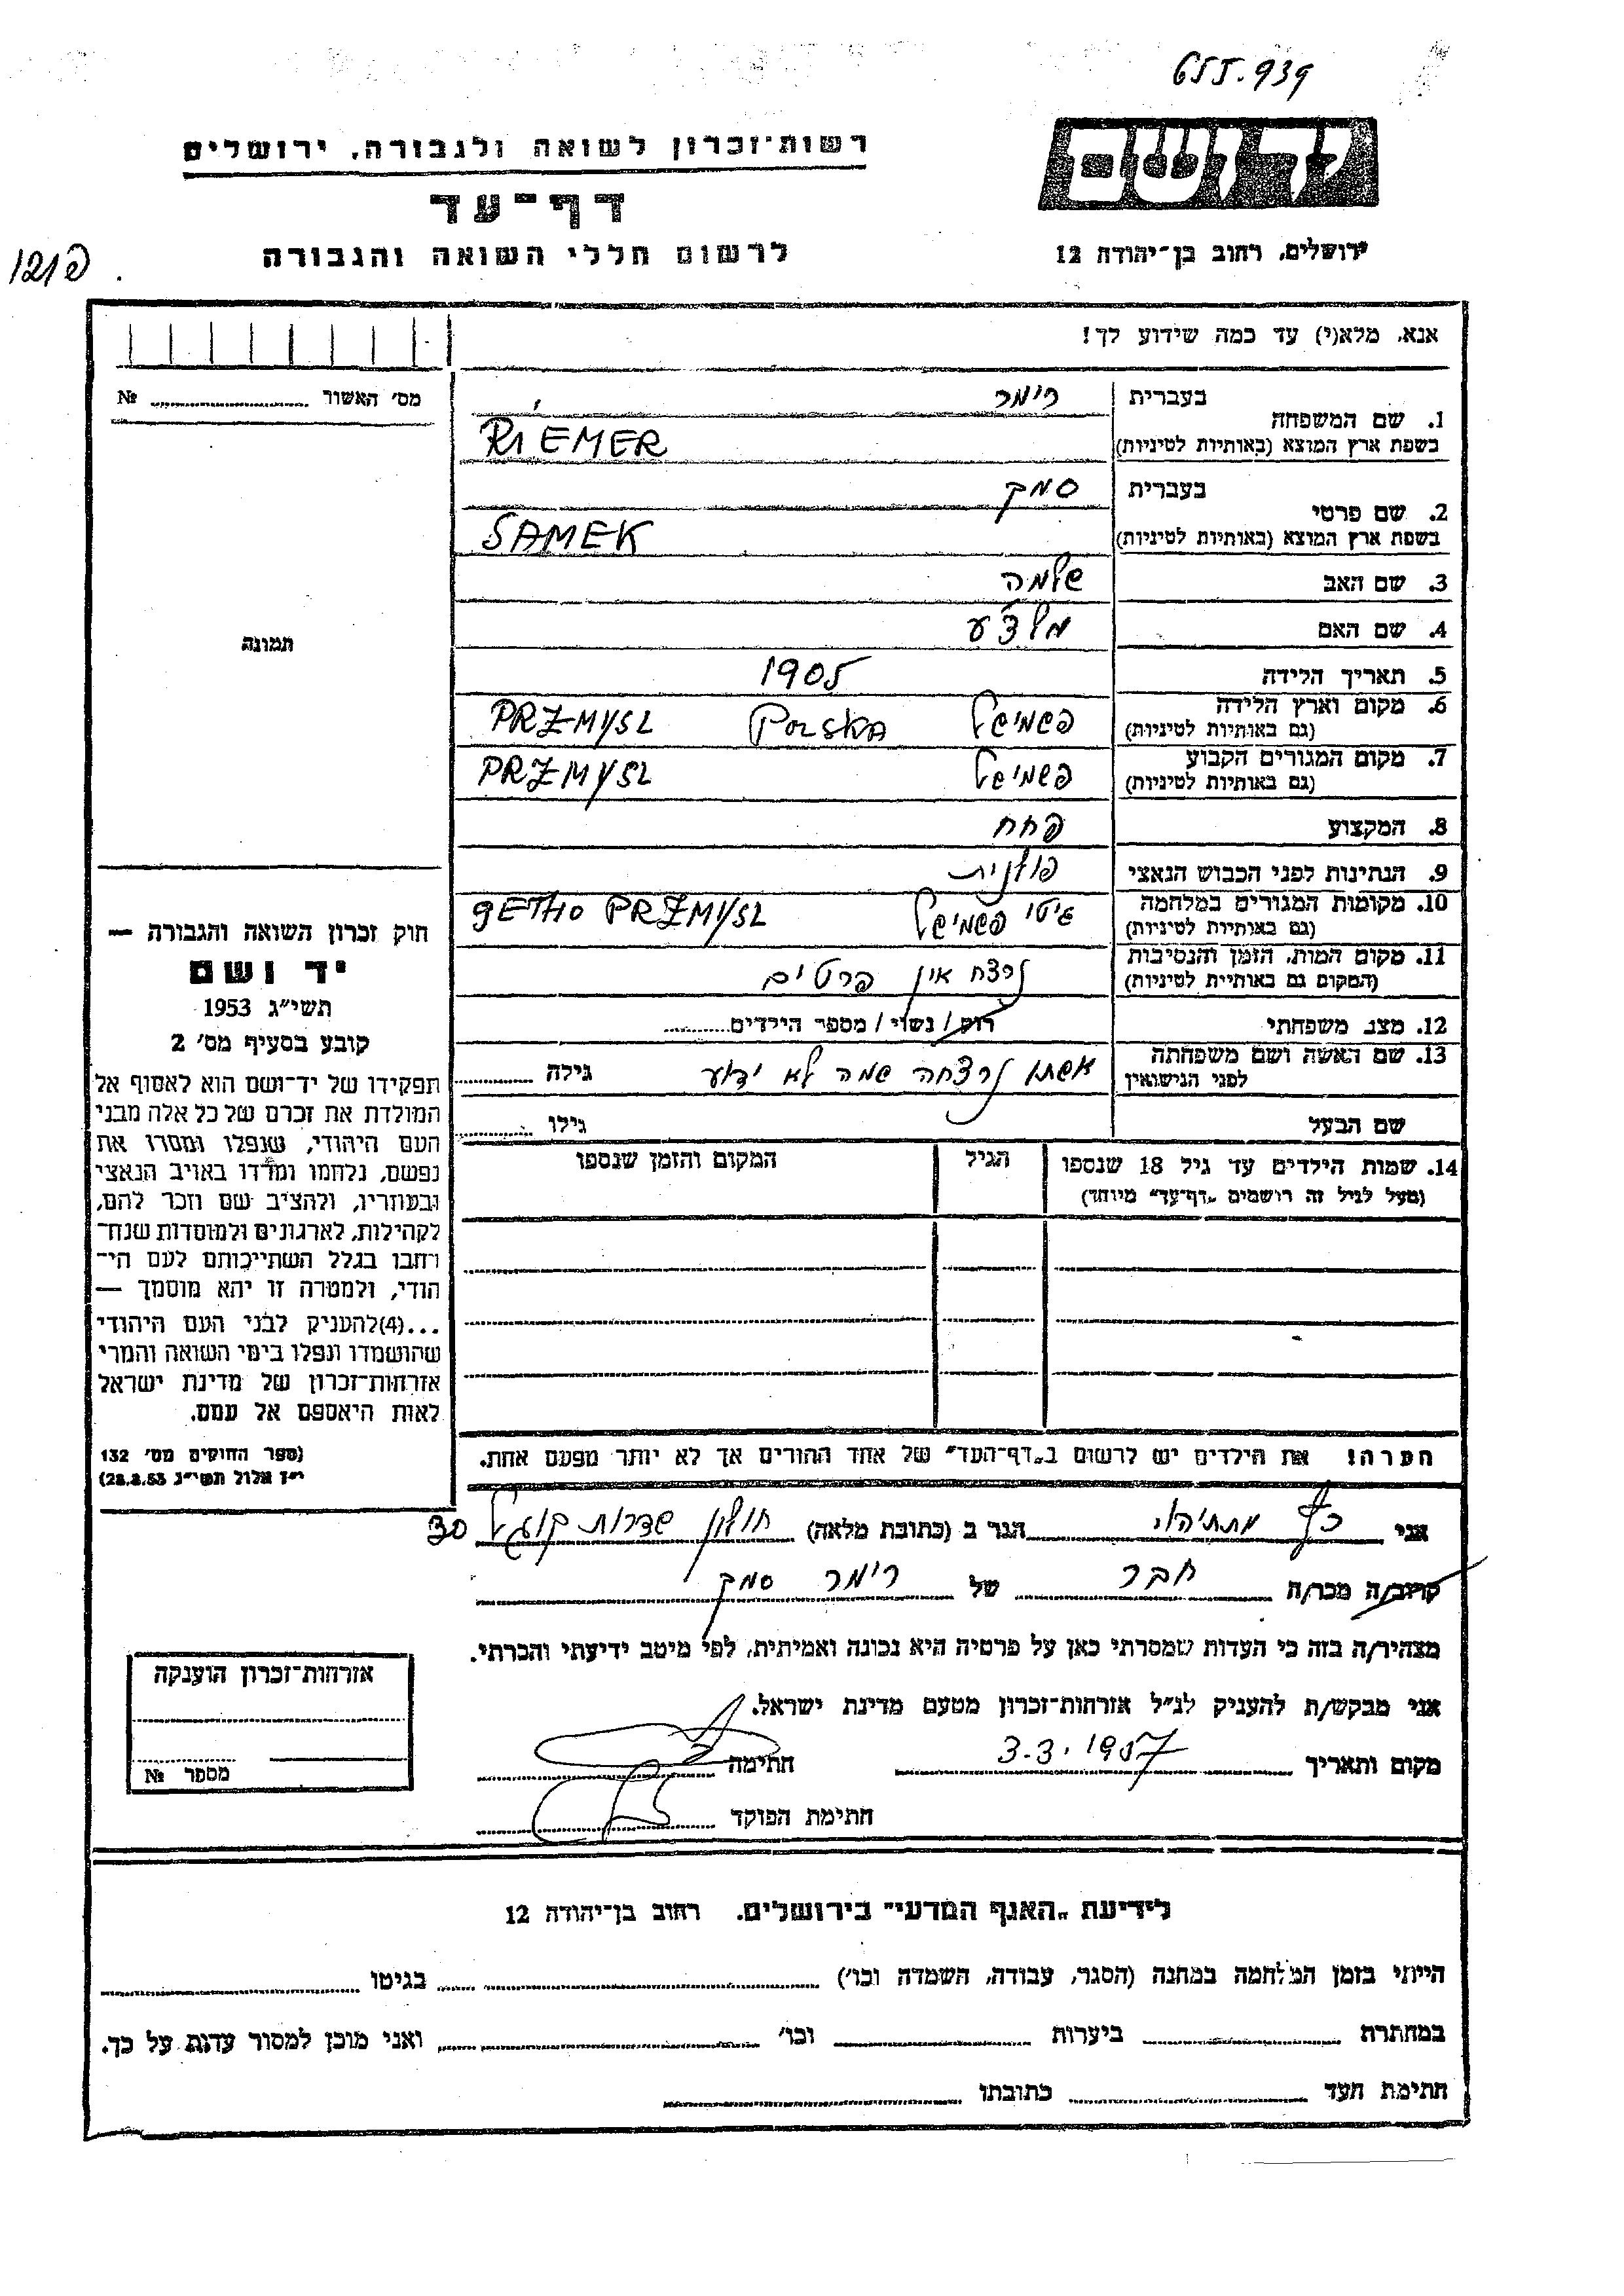 655.939
יד ושם
רשות־זכרון לשואה ולגבורה, ירושלים
דף־עד
לרשום חללי השואה והגבורה
ירושלים, רחוב בן־יהודה 12
פ121
אנא, מלא(י) עד כמה שידוע לך!
מס׳ האשור № ........
תמונה
1. שם המשפחה בעברית רימר
בשפת ארץ המוצא (באותיות לטיניות) RIEMER
2. שם פרטי בעברית סמק
בשפת ארץ המוצא (באותיות לטיניות) SAMEK
3. שם האב שלמה
4. שם האם
5. תאריך הלידה 1905
6. מקום וארץ הלידה (גם באותיות לטיניות) פשמישל POLSKA PRZMYSL
7. מקום המגורים הקבוע (גם באותיות לטיניות) פשמישל PRZMYSL
8. המקצוע פחח
9. הנתינות לפני הכבוש הנאצי פולנית
10. מקומות המגורים במלחמה (גם באותיות לטיניות) גיטו פשמישל GETHO PRZMYSL
11. מקום המות, הזמן והנסיבות (המקום גם באותיות לטיניות) נרצח אין פרטים
12. מצב משפחתי רווק / נשוי / מספר הילדים........
13. שם האשה ושם משפחתה לפני הנישואין אשתו נרצחה שמה לא ידוע גילה ........
שם הבעל גילו ........
14. שמות הילדים עד גיל 18 שנספו הגיל המקום והזמן שנספו
(מעל לגיל זה רושמים „דף־עד״ מיוחד)
הערה! את הילדים יש לרשום ב„דף־העד״ של אחד ההורים אך לא יותר מפעם אחת.
חוק זכרון השואה והגבורה —
יד ושם
תשי״ג 1953
קובע בסעיף מס׳ 2
תפקידו של יד־ושם הוא לאסוף אל
המולדת את זכרם של כל אלה מבני
העם היהודי, שנפלו ומסרו את
נפשם, נלחמו ומרדו באויב הנאצי
ובעוזריו, ולהציב שם וזכר להם,
לקהילות, לארגונים ולמוסדות שנח־
רחבו בגלל השתייכותם לעם הי־
הודי, ולמטרה זו יהא מוסמך —
...(4)להעניק לבני העם היהודי
שהושמדו ונפלו בימי השואה והמרי
אזרחות־זכרון של מדינת ישראל
לאות היאספם אל עמם.
(ספר החוקים מס׳ 132
י״ז אלול תשי״ג 28.8.53)
אני כץ מתתיהו הגר ב (כתובת מלאה) חולון שדרות קוגל 30
קרוב/ה מכר/ה חבר של רימר סמק
מצהיר/ה בזה כי העדות שמסרתי כאן על פרטיה היא נכונה ואמיתית, לפי מיטב ידיעתי והכרתי.
אני מבקש/ת להעניק לנ״ל אזרחות־זכרון מטעם מדינת ישראל.
מקום ותאריך 3.3.1957 חתימה
חתימת הפוקד
אזרחות־זכרון הוענקה
מספר №
לידיעת „האגף המדעי״ בירושלים. רחוב בן־יהודה 12
הייתי בזמן המלחמה במחנה (הסגר, עבודה, השמדה וכו׳) ........ בגיטו ........
במחתרת ........ ביערות ........ וכו׳ ........ ואני מוכן למסור עדות על כך.
חתימת העד ........ כתובתו ........